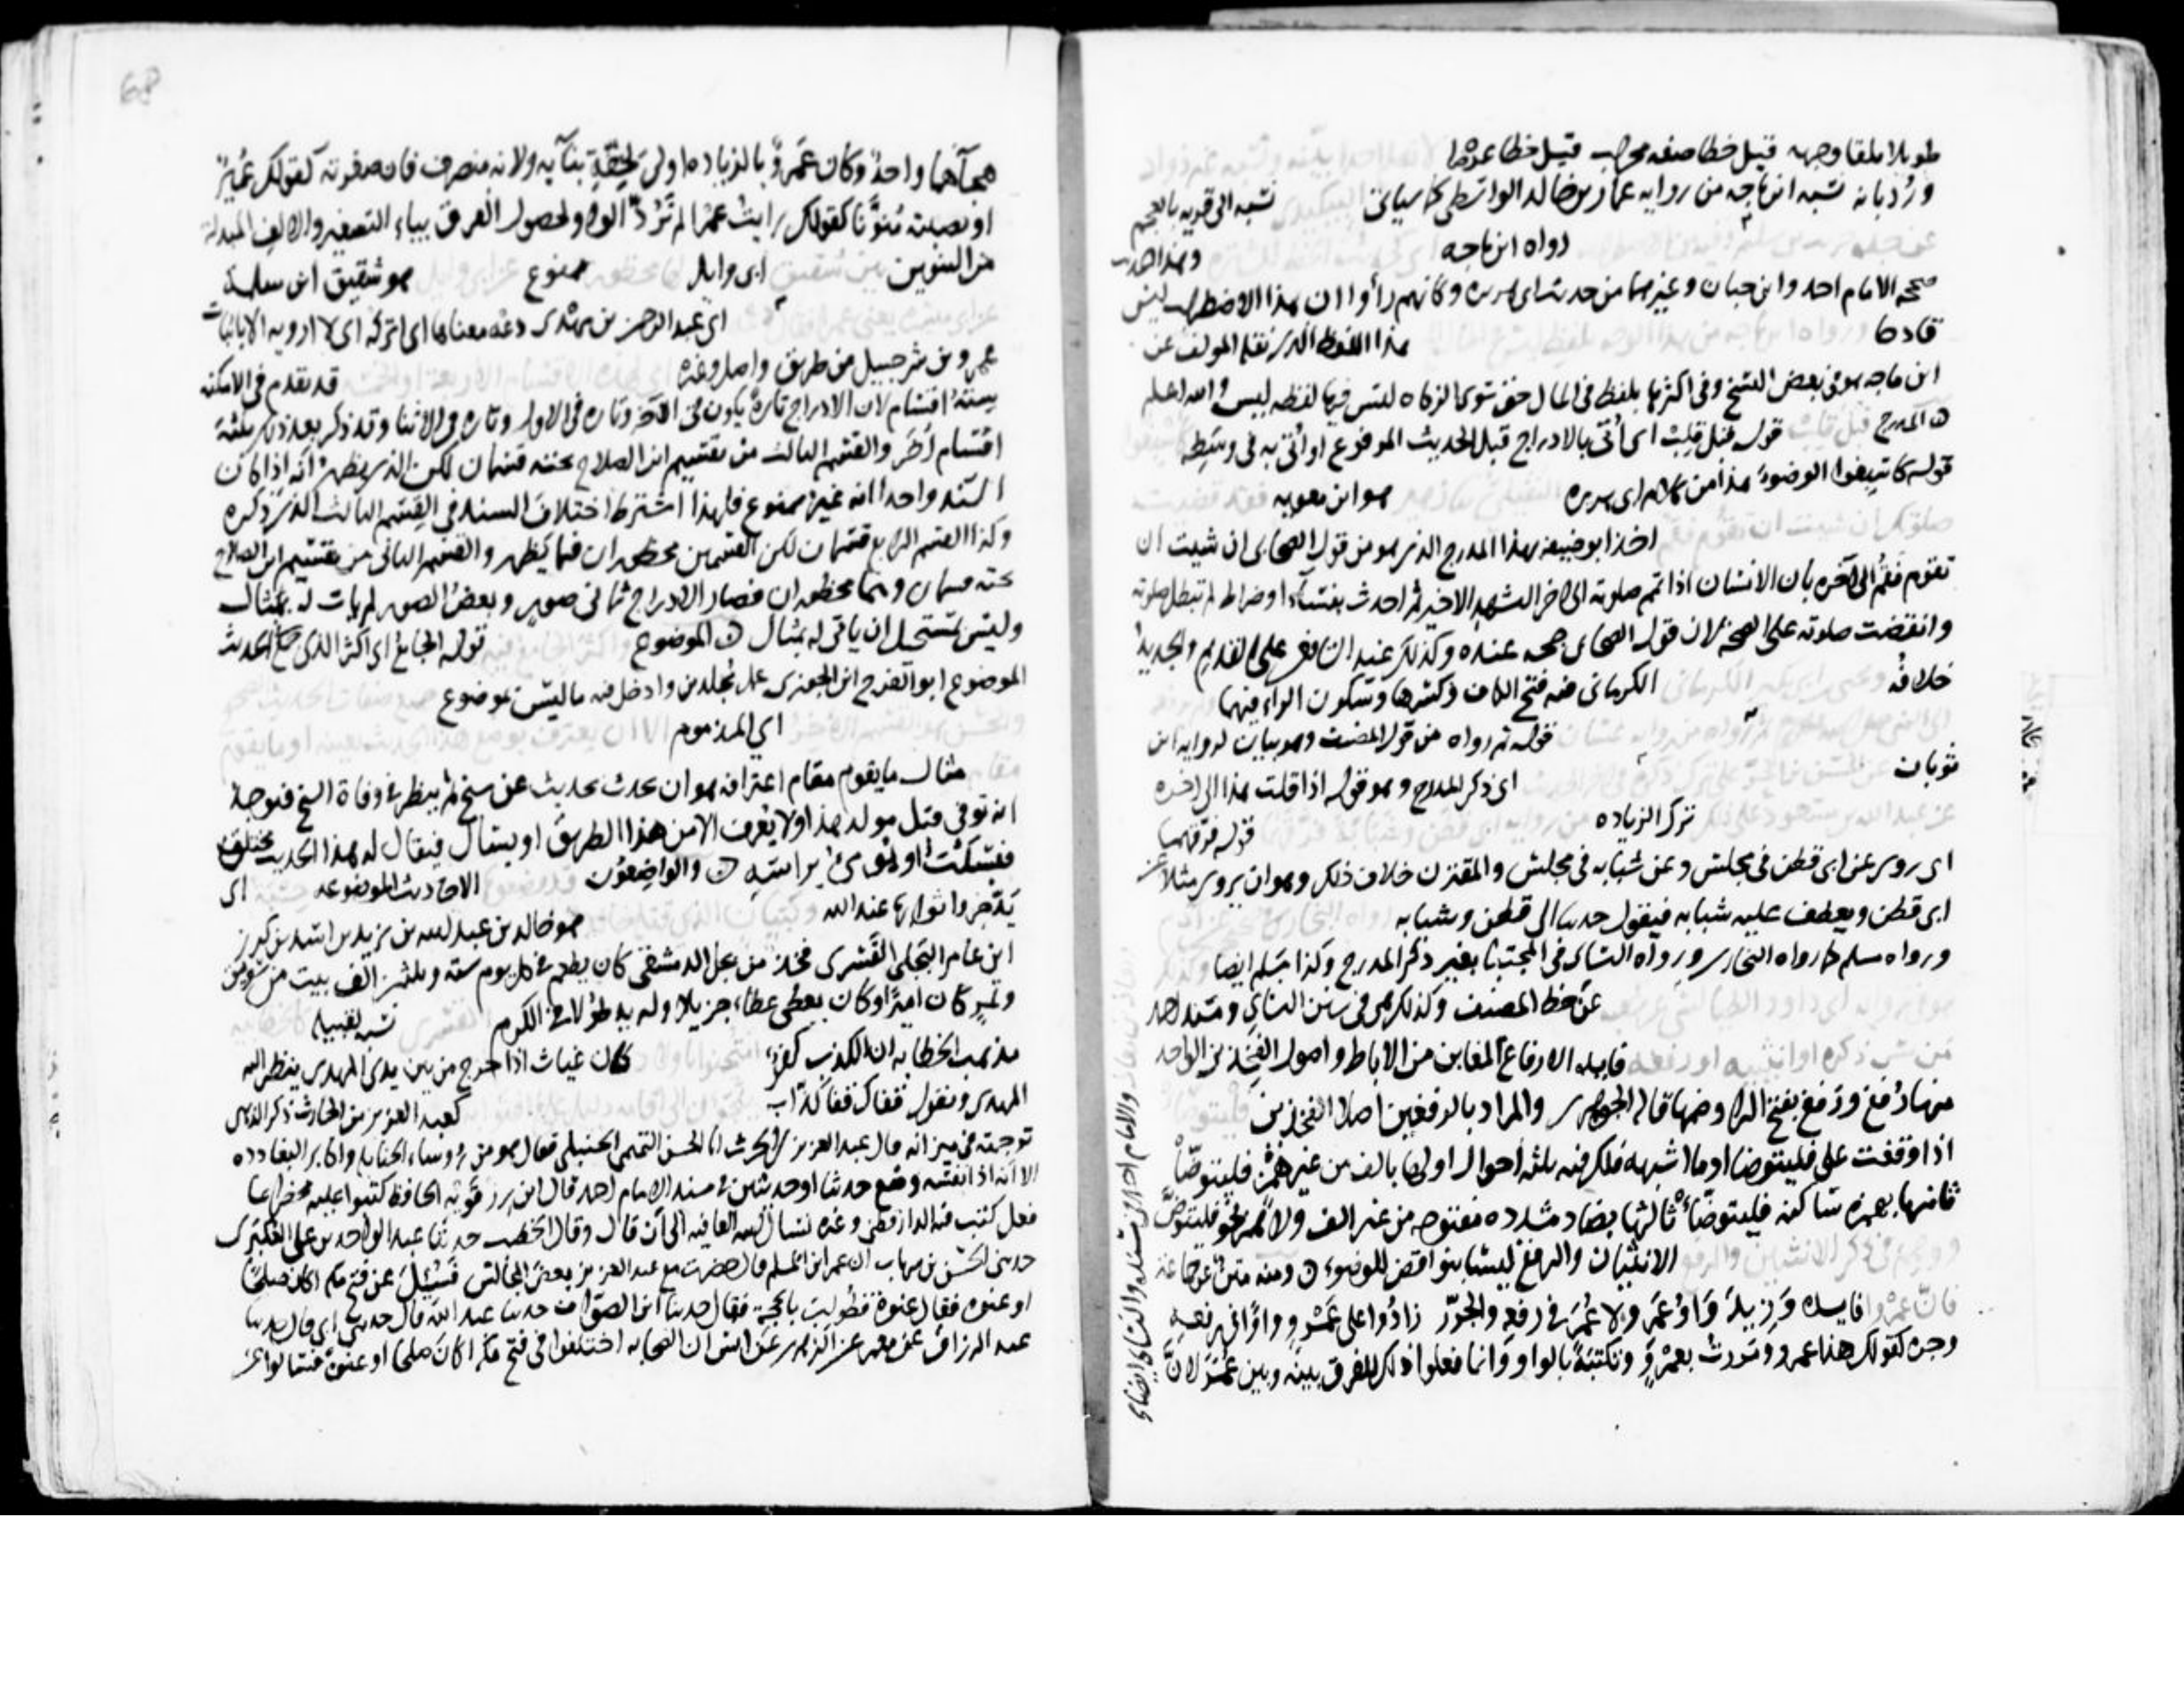 طويلا ملقا وجهه قيل خطا صفه محراب قيل خطا عرضا
ورد بانه نسبه ابن ماجه من روايه عمار بن خالد الواسطي كما سياتي نسبه الى قريه بالعجم
رواه ابن ماجه وهذا الحديث
صححه الامام احمد وابن حبان وغيرهما من حديث ابى هريره وكانهم رأوا ان هذا الاضطراب ليس
قادحا هذا اللفظ الذي نقله المولف عن
ابن ماجه هو في بعض النسخ وفي اكثرها بلفظ في المال حق سوى الزكاه ليس فيها لفظه ليس والله اعلم
المدرج قوله قبل قلبت اى أتى بالادراج قبل الحديث المرفوع او أتى به في وسطه
قوله كاسبغوا الوضوء هذا من كلام ابى هريره هو ابن معويه
اخذ ابو حنيفه بهذا المدرج الذي هو من قول الصحابي ان شيت ان
تقوم فقم الى آخره بان الانسان اذا تمم صلوته الى اخر التشهد الاخير ثم احدث بفساء او ضراط لم تبطل صلوته
وانقضت صلوته على الصحه لان قول الصحابي حجه عنده وكذلك عند الشافعي على القديم والجديد
خلافه الكرماني فيه فتح الكاف وكسرها وسكون الراء فيهما
قوله ثم رواه من قول المصنف وهو بيان لروايه ابن
ثوبان اى ذكر المدرج وهو قوله اذا قلت هذا الى اخره
ترك الزياده قوله فرقهما
اى روى عن ابى قطن في مجلس وعن شبابه في مجلس والمقترن خلاف ذلك وهو ان يروى مثلا عن
ابى قطن ويعطف عليه شبابه فيقول حدثنا ابى قطن وشبابه
ورواه مسلم كما رواه البخاري ورواه النسائي في المجتبى بغير ذكر المدرج وكذا مسلم ايضا
عن خط المصنف وكذلك هي في سنن النسائي ومسند احمد
فايده الارفاع المغابن من الاباط واصول الفخذين الواحد
منها رُفغ ورَفغ بفتح الراء وضمها قاله الجوهري والمراد بالرفغين اصلا الفخذين
اذا وقفت على فليتوضا وما اشبهه فلك فيه ثلثه احوال اولها بالف من غير همز فليتوضا
ثانيها بهمزه ساكنه فليتوضأ ثالثها بضاد مشدده مفتوحه من غير الف ولا همز نحو فليتوض
الانثيان والرفغ ليسا بنواقض للوضوء ومنه
فايده وزيدت واو عمرو ولا عمر في رفع والجر زادوا على عمرو واوا في رفعه
وجره كقولك هذا عمرو ومررت بعمرو وتكتبه بالواو وانما فعلوا ذلك للفرق بينه وبين عمر لان
والامام احمد في مسنده والنسائي ايضا
68
هجآهما واحد وكان عمرو بالزياده اولى لخفة بنائه ولانه منصرف فان صغرته كقولك عُمير
او نصبته منونا كقولك رايت عمرا لم تزد الواو لحصول الفرق بياء التصغير والالف المبدلة
من التنوين ابى وايل ممنوع هو شقيق ابن سلمة
اى عبد الرحمن بن مهدى دعه معناها اى اتركه اى لا ارويه الا باثبات
عمرو بن شرحبيل من طريق واصل وغيره قد تقدم في الامكنه
سته اقسام لان الادراج تارة يكون في الآخر وتاره في الاول وتاره في الاثنا وقد ذكر بعد ذلك ثلثه
اقسام أُخَر والقسم الثالث من تقسيم ابن الصلاح تحته قسمان لكن الذي يظهر انه اذا كان
السند واحدا انه غير ممنوع فلهذا اشترط اختلاف السند في القسم الثالث الذي ذكره
وكذا القسم الرابع قسمان لكن القسمين محظوران فيما يظهر والقسم الثاني من تقسيم ابن الصلاح
تحته قسمان وهما محظوران فصار الادراج ثماني صور وبعض الصور لم يات له بمثال
وليس يستحيل ان ياتى له بمثال الموضوع قوله الجامع اى اكثر الذى جمع الحديث
الموضوع ابو الفرج ابن الجوزى عمل مجلدين وادخل فيه ما ليس بموضوع
اى المذموم
مثال ما يقوم مقام اعترافه هو ان يحدث بحديث عن شيخ ثم ينظر في وفاة الشيخ فيوجد
انه توفي قبل مولد هذا ولا يعرف الا من هذا الطريق او يسال فيقال له هذا الحديث مختلق
فسكت او يومئ براسه والواضعون الاحاديث الموضوعه اى
يدخروا ثوابها عند الله هو خالد بن عبد الله بن يزيد بن اسد بن كرز
ابن عامر البجلي القسرى فخذ من بجل الدمشقي كان يطعم في كل يوم سته وثلثين الف بيت من سويق
وتمر كان اميرا وكان يعطي عطاء جزيلا وله يد طولا في الكرم نسبه لقبيله
مذهب الخطابه ان الكذب كفر كان غياث اذا خرج من بين يدى المهدى ينظر اليه
المهدى ويقول قفاك قفا كذاب كعبد العزيز بن الحارث ذكر الذهبي
توجمته في ميزانه قال عبد العزيز بن الحرث ابا الحسن التميمي الحنبلي فقال هو من رؤساء الحنابله واكابر البغادده
الا انه اذى نفسه وضع حديثا او حديثين في مسند الامام احمد قال ابن رزقويه الحافظ كتبوا عليه محضرا بما
فعل كتب فيه الدارقطني وغيره نسال الله العافيه الى أن قال وقال الخطيب حدثنا عبد الواحد بن على العكبرى
حدثنى الحسن بن شهاب ان عمر ابن المسلم قال حضرت مع عبد العزيز بعض المجالس فسئل عن فتح مكه اكان صلحا
او عنوه فقال عنوة فطولب بالحجة فقال حدثنا ابن الصواف حدثنا عبد الله قال حدثني ابى قال حدثنا
عبد الرزاق عن معمر عن الزهرى عن انس ان الصحابه اختلفوا في فتح مكه اكان صلحا او عنوة فسالوا عن